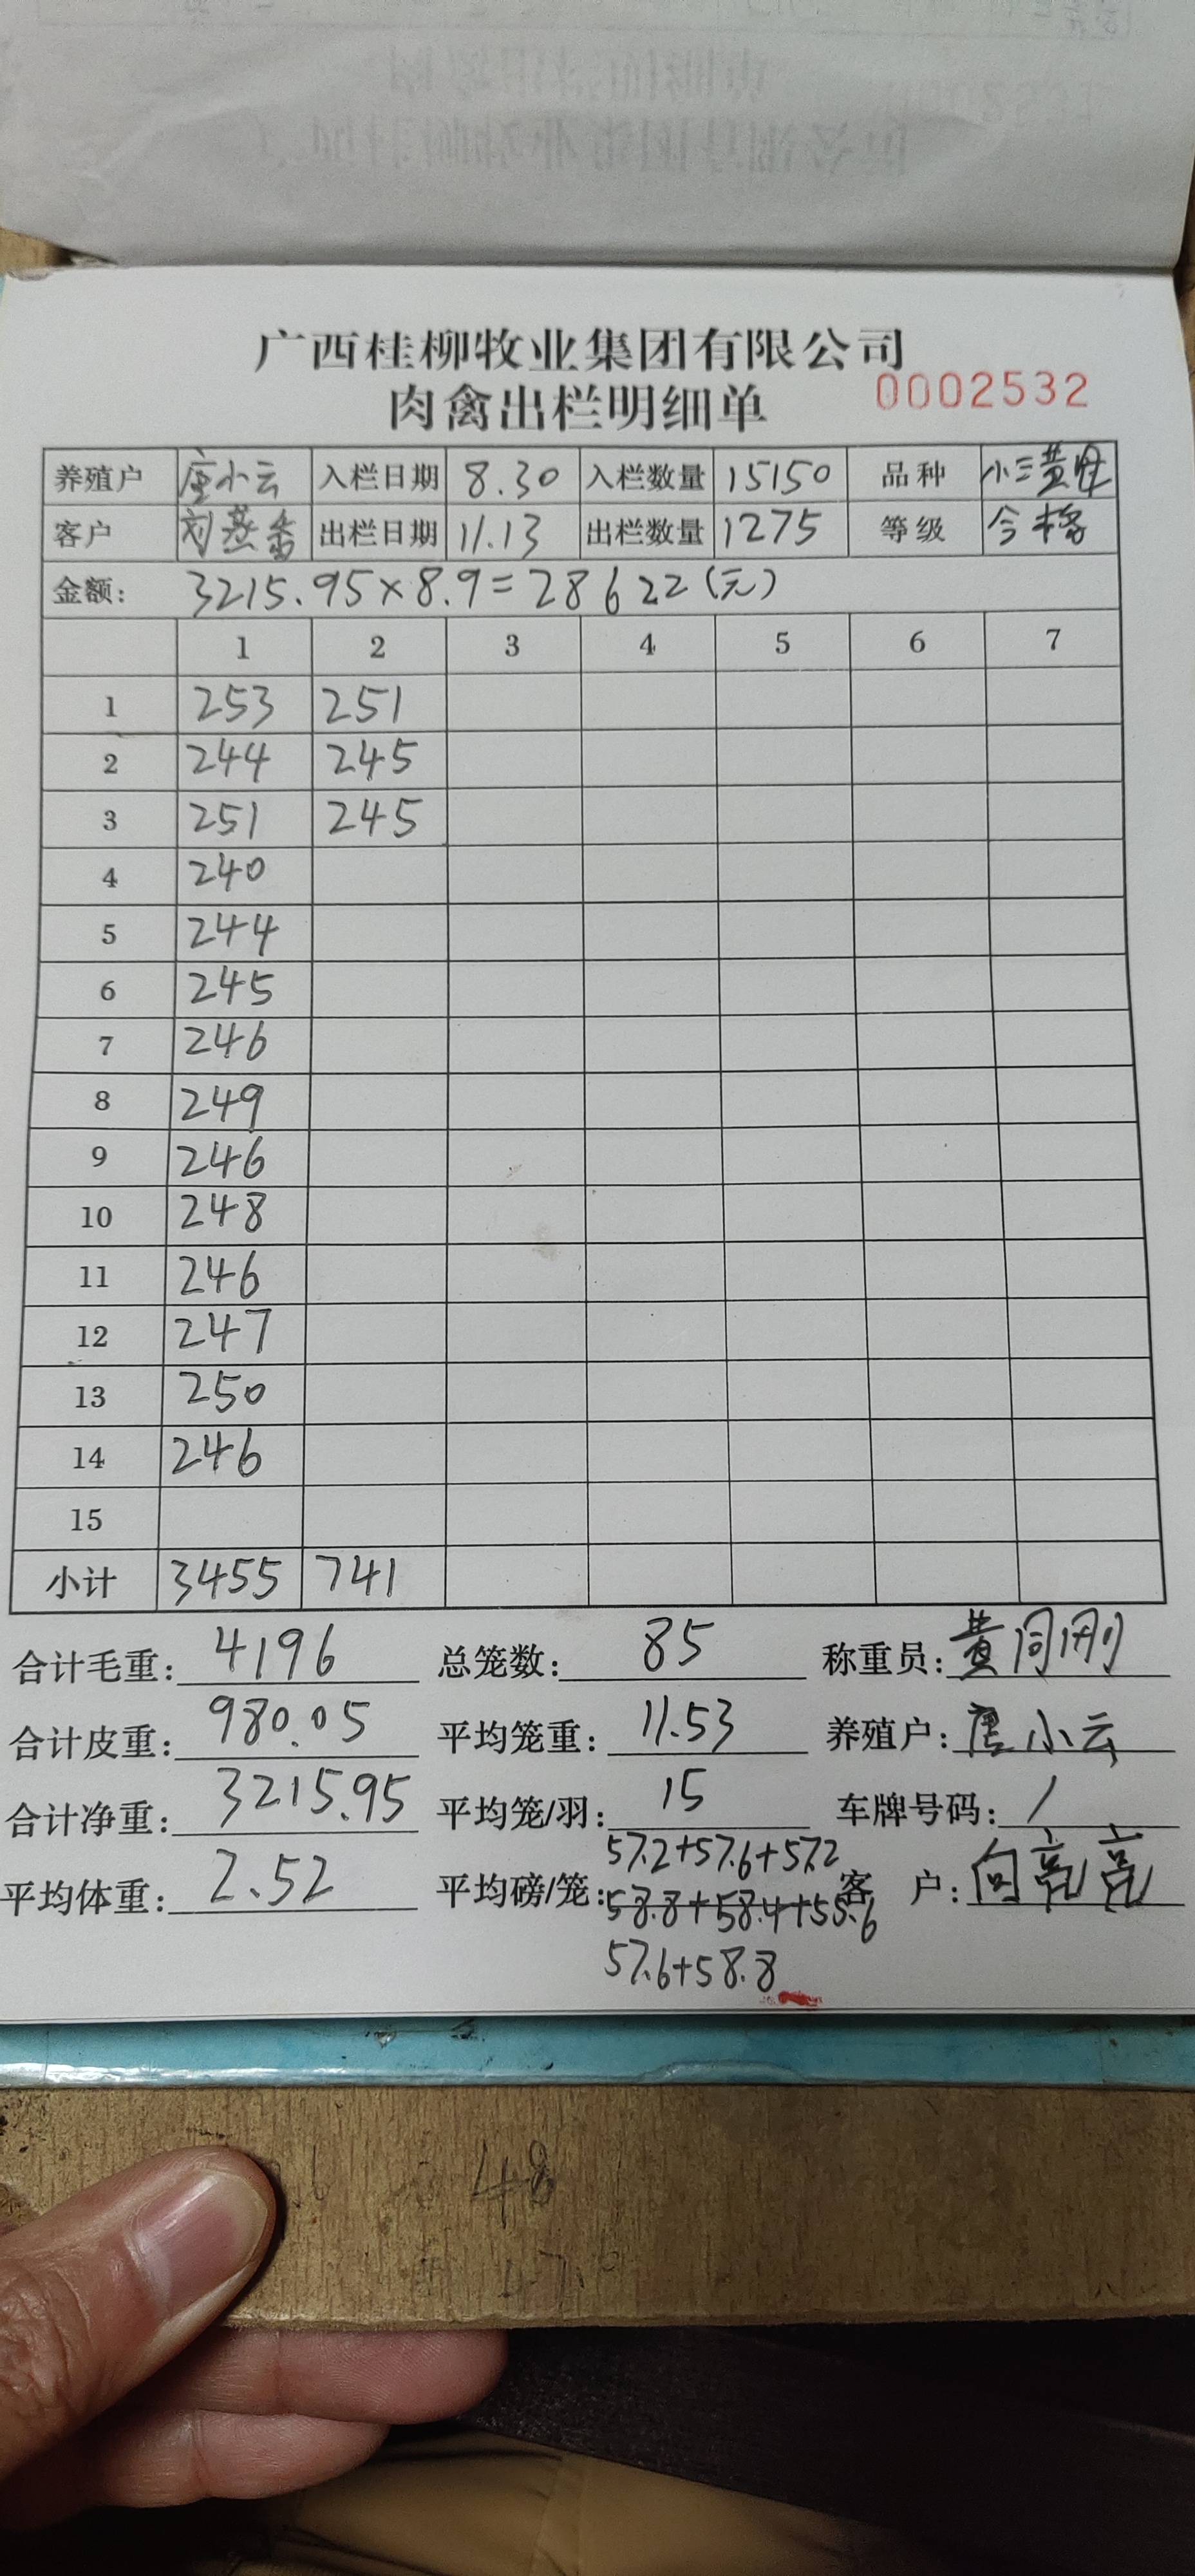 广西桂柳牧业集团有限公司
肉禽出栏明细单 0002532
养殖户 唐小云 入栏日期 8.30 入栏数量 15150 品种 小三黄母
客户 刘燕香 出栏日期 11.13 出栏数量 1275 等级 合格
金额: 3215.95×8.9=28622(元)
1 2 3 4 5 6 7
1 253 251
2 244 245
3 251 245
4 240
5 244
6 245
7 246
8 249
9 246
10 248
11 246
12 247
13 250
14 246
15
小计 3455 741
合计毛重: 4196 总笼数: 85 称重员: 黄同刚
合计皮重: 980.05 平均笼重: 11.53 养殖户: 唐小云
合计净重: 3215.95 平均笼/羽: 15 车牌号码: /
平均体重: 2.52 平均磅/笼: 57.2+57.6+57.2 客 户: 向亮亮
58.8+58.4+55.6
57.6+58.8
48